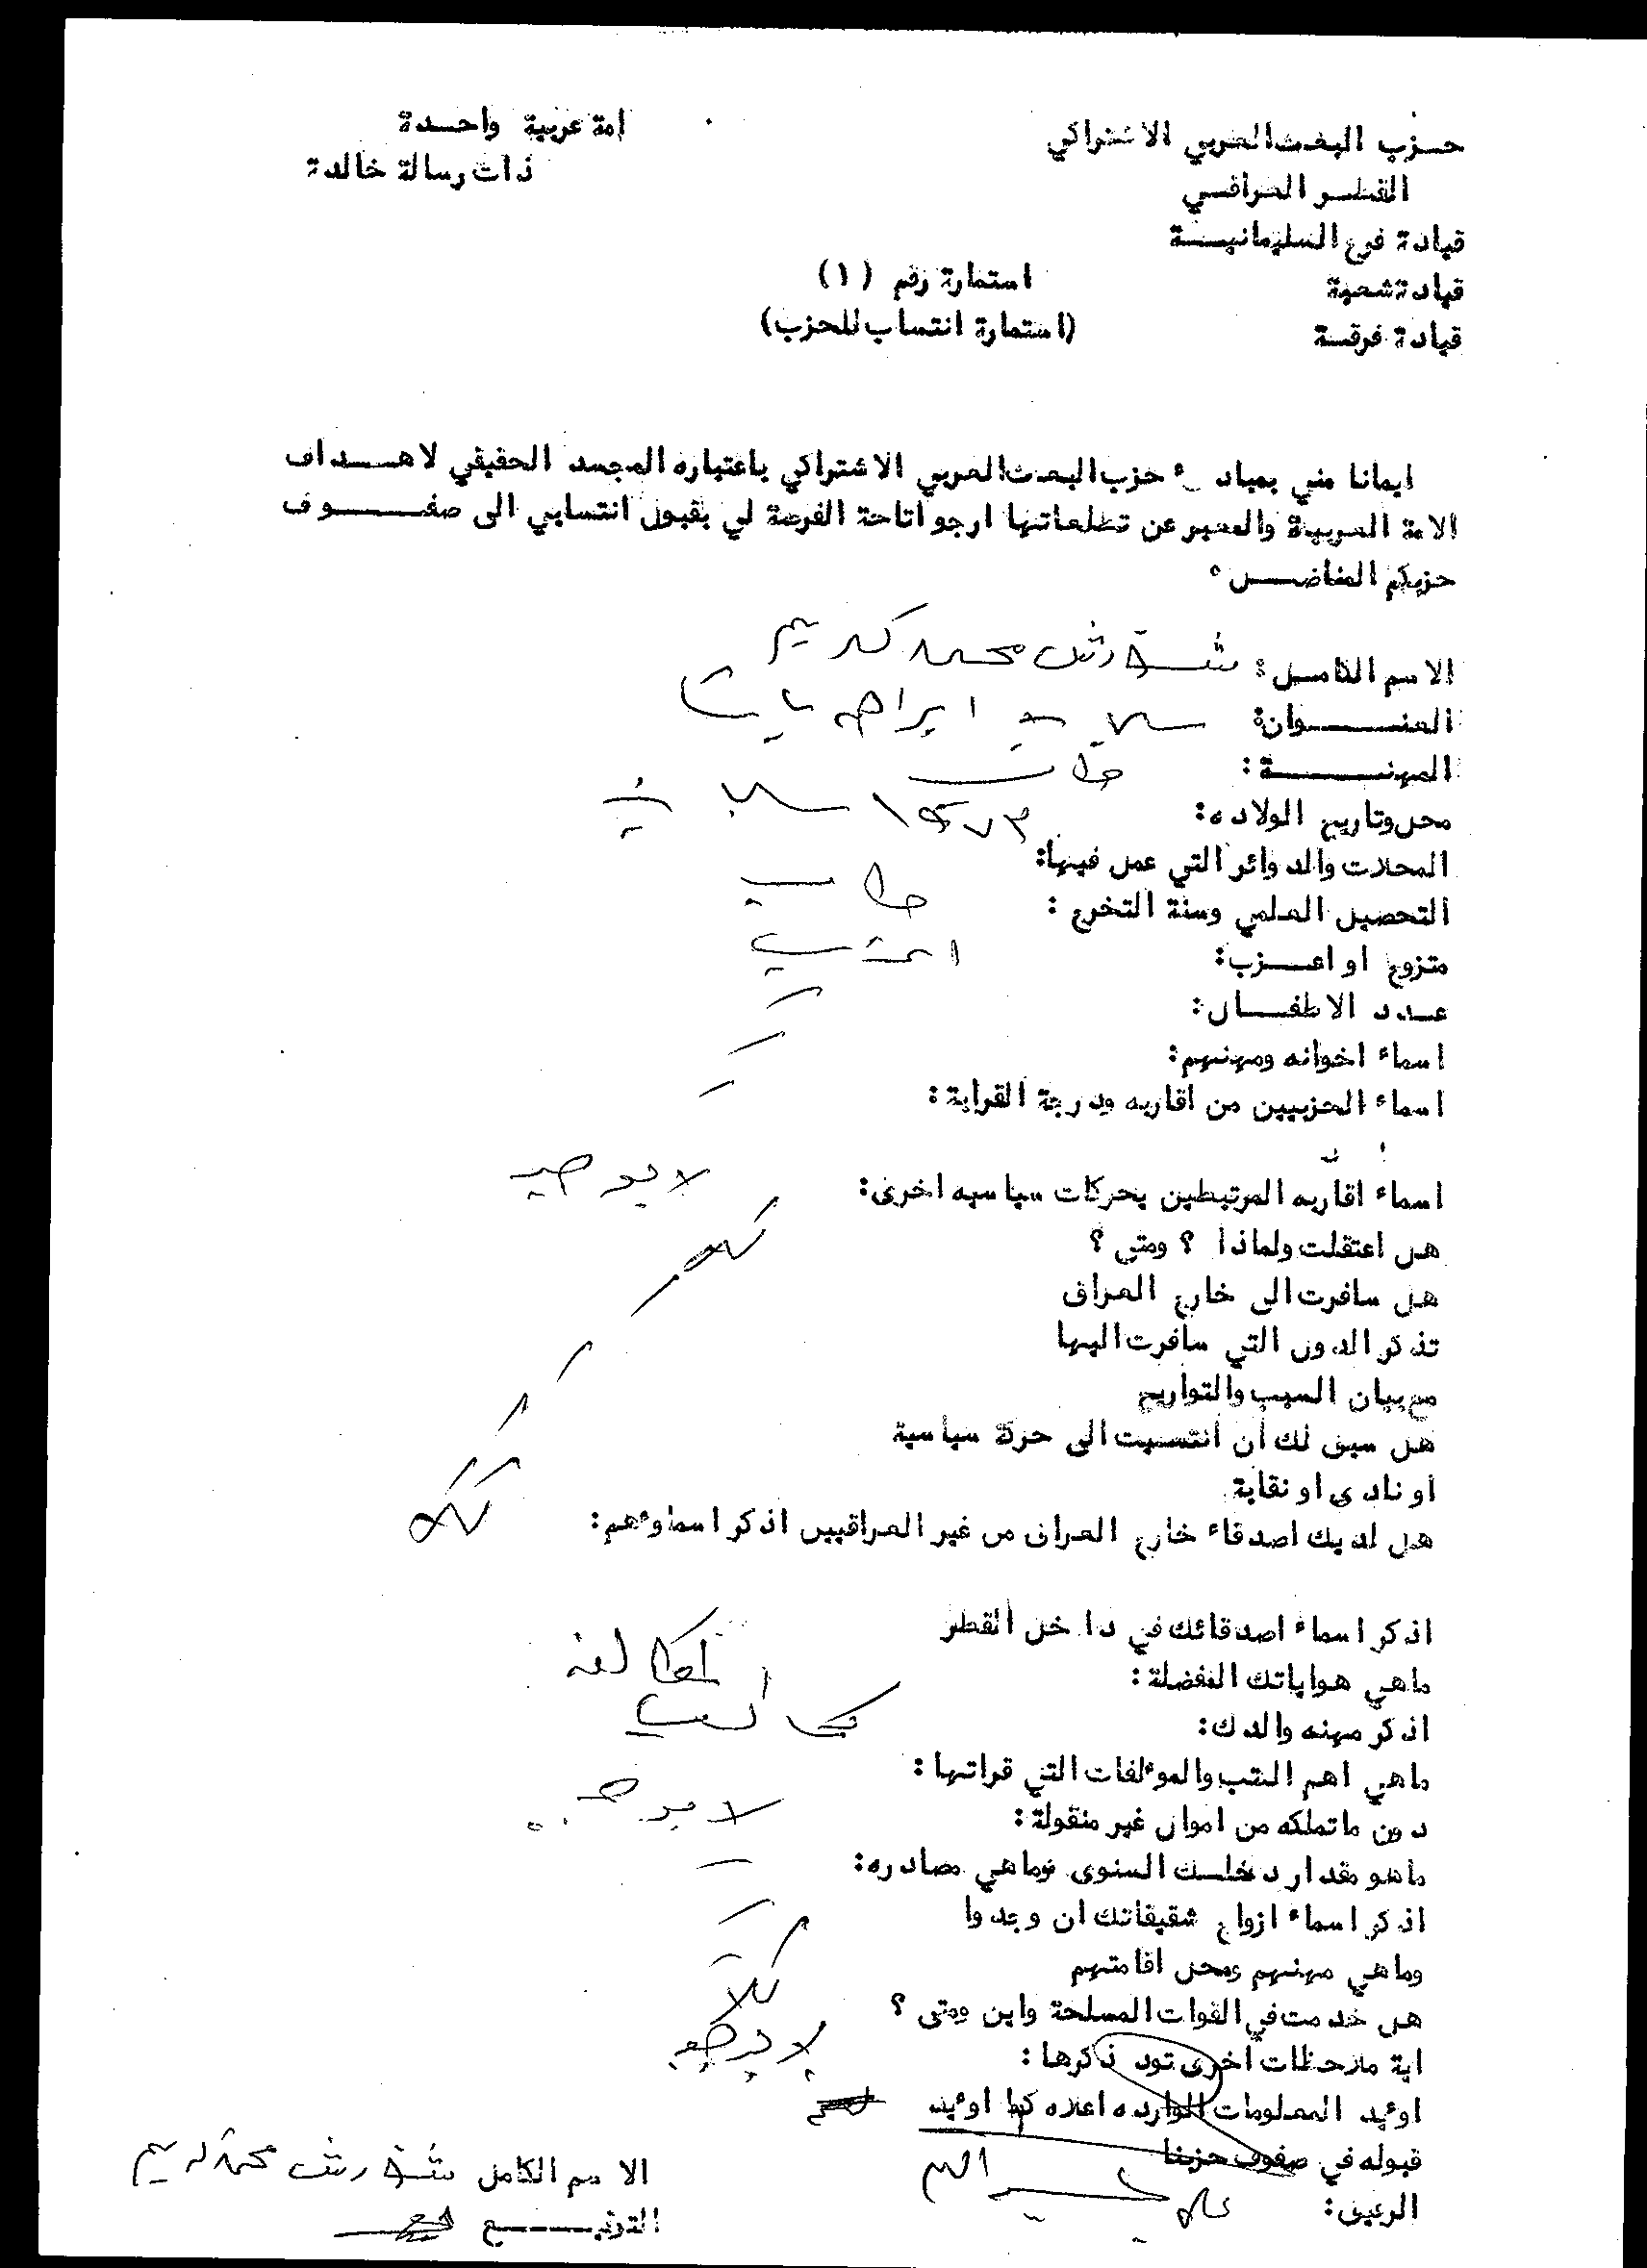 حزب البعث العربي الاشتراكي
امة عربية واحدة
القطر العراقي
ذات رسالة خالدة
قيادة فرع السليمانية
قيادة شعبة
استمارة رقم (١)
قيادة فرقة
(استمارة انتساب للحزب)
ايمانا مني بمبادىء حزب البعث العربي الاشتراكي باعتباره المجسد الحقيقي لاهداف
الامة العربية والمعبر عن تطلعاتها ارجو اتاحة الفرصة لي بقبول انتسابي الى صفوف
حزبكم المناضل.
الاسم الكامل: شورش محمد كريم
العنوان: ابراهيم باشا
المهنة: طالب
محل وتاريخ الولاده: ١٩٧٣
المحلات والدوائر التي عمل فيها:
التحصيل العلمي وسنة التخرج: طالب
متزوج او اعزب: اعزب
عدد الاطفال:
اسماء اخوانه ومهنهم:
اسماء الحزبيين من اقاربه ودرجة القرابة:
اسماء اقاربه المرتبطين بحركات سياسيه اخرى: لا يوجد
هل اعتقلت ولماذا ؟ ومتى ؟ كلا
هل سافرت الى خارج العراق
تذكر الدول التي سافرت اليها
مع بيان السبب والتواريخ
هل سبق لك ان انتسبت الى حركة سياسية
او نادي او نقابة
هل لديك اصدقاء خارج العراق من غير العراقيين اذكر اسماؤهم: كلا
اذكر اسماء اصدقائك في داخل القطر
ماهي هواياتك المفضلة: المطالعة
اذكر مهنه والدك:
ماهي اهم الكتب والمؤلفات التي قراتها:
دون ماتملكه من اموال غير منقولة: لا يوجد
ماهو مقدار دخلك السنوي وماهي مصادره:
اذكر اسماء ازواج شقيقاتك ان وجدوا
وماهي مهنهم ومحل اقامتهم
هل خدمت في القوات المسلحة واين ومتى ؟ كلا
اية ملاحظات اخرى تود ذكرها: لا يوجد
اؤيد المعلومات الوارده اعلاه كما اؤيد
قبوله في صفوف حزبنا
الاسم الكامل شورش محمد كريم
الرفيق:
التوقيع